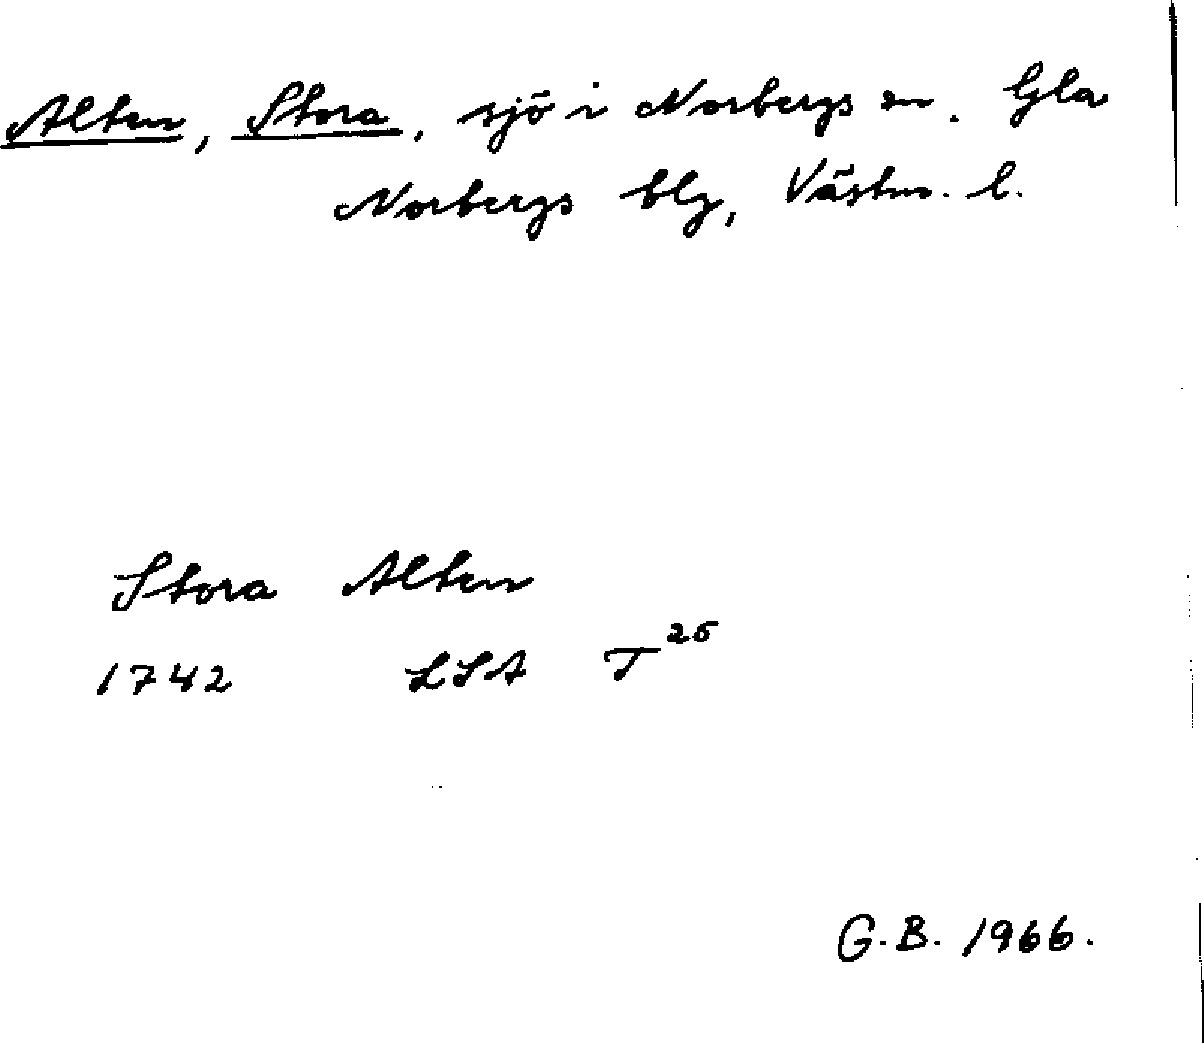 Alten, Stora, sjö i Norbergs sn. Gla
Norbergs blg, Västm. l.
Stora Alten
1742 LSA T25
G.B. 1966.